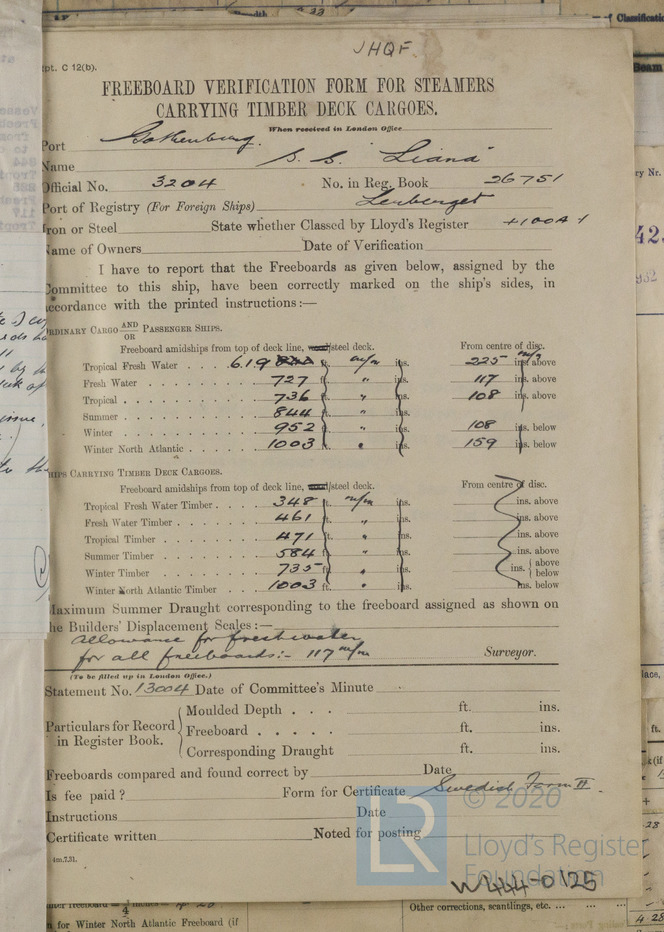 JHQF.
pt. C 12(b).
FREEBOARD VERIFICATION FORM FOR STEAMERS
CARRYING TIMBER DECK CARGOES.
When received in London Office
Port Gothenburg.
Name S.S. "Liana"
Official No. 3204 No. in Reg. Book 26751
Port of Registry (For Foreign Ships)
Iron or Steel State whether Classed by Lloyd's Register +100A1
Name of Owners Date of Verification
I have to report that the Freeboards as given below, assigned by the
Committee to this ship, have been correctly marked on the ship's sides, in
accordance with the printed instructions:—
ORDINARY CARGO AND OR PASSENGER SHIPS.
Freeboard amidships from top of deck line, /steel deck. From centre of disc.
Tropical Fresh Water 619 ft. m/m ins. 225 ins. m/m above
Fresh Water 727 ft. " ins. 117 ins. above
Tropical 736 ft. " ins. 108 ins. above
Summer 844 ft. " ins.
Winter 952 ft. " ins. 108 ins. below
Winter North Atlantic 1003 ft. " ins. 159 ins. below
SHIPS CARRYING TIMBER DECK CARGOES.
Freeboard amidships from top of deck line, /steel deck. From centre of disc.
Tropical Fresh Water Timber 348 ft. m/m ins. ins. above
Fresh Water Timber 461 " ins. ins. above
Tropical Timber 471 ft. " ins. ins. above
Summer Timber 584 ft. " ins. ins. above
Winter Timber 735 ft. " ins. ins. above below
Winter North Atlantic Timber 1003 ft. " ins. ins. below
Maximum Summer Draught corresponding to the freeboard assigned as shown on
the Builders' Displacement Scales:—
Allowance for freshwater
for all freeboards:- 117 m/m Surveyor.
(To be filled up in London Office.)
Statement No. 13004 Date of Committee's Minute
Particulars for Record in Register Book.
Moulded Depth . . . ft. ins.
Freeboard . . . . . ft. ins.
Corresponding Draught ft. ins.
Freeboards compared and found correct by Date
Is fee paid ? Form for Certificate Swedish Form II.
Instructions Date
Certificate written Noted for posting
4m.7.31.
LR
© 2020
Lloyd's Register
Foundation
W444-0125
for Winter North Atlantic Freeboard (if
Other corrections, scantlings, etc. ...